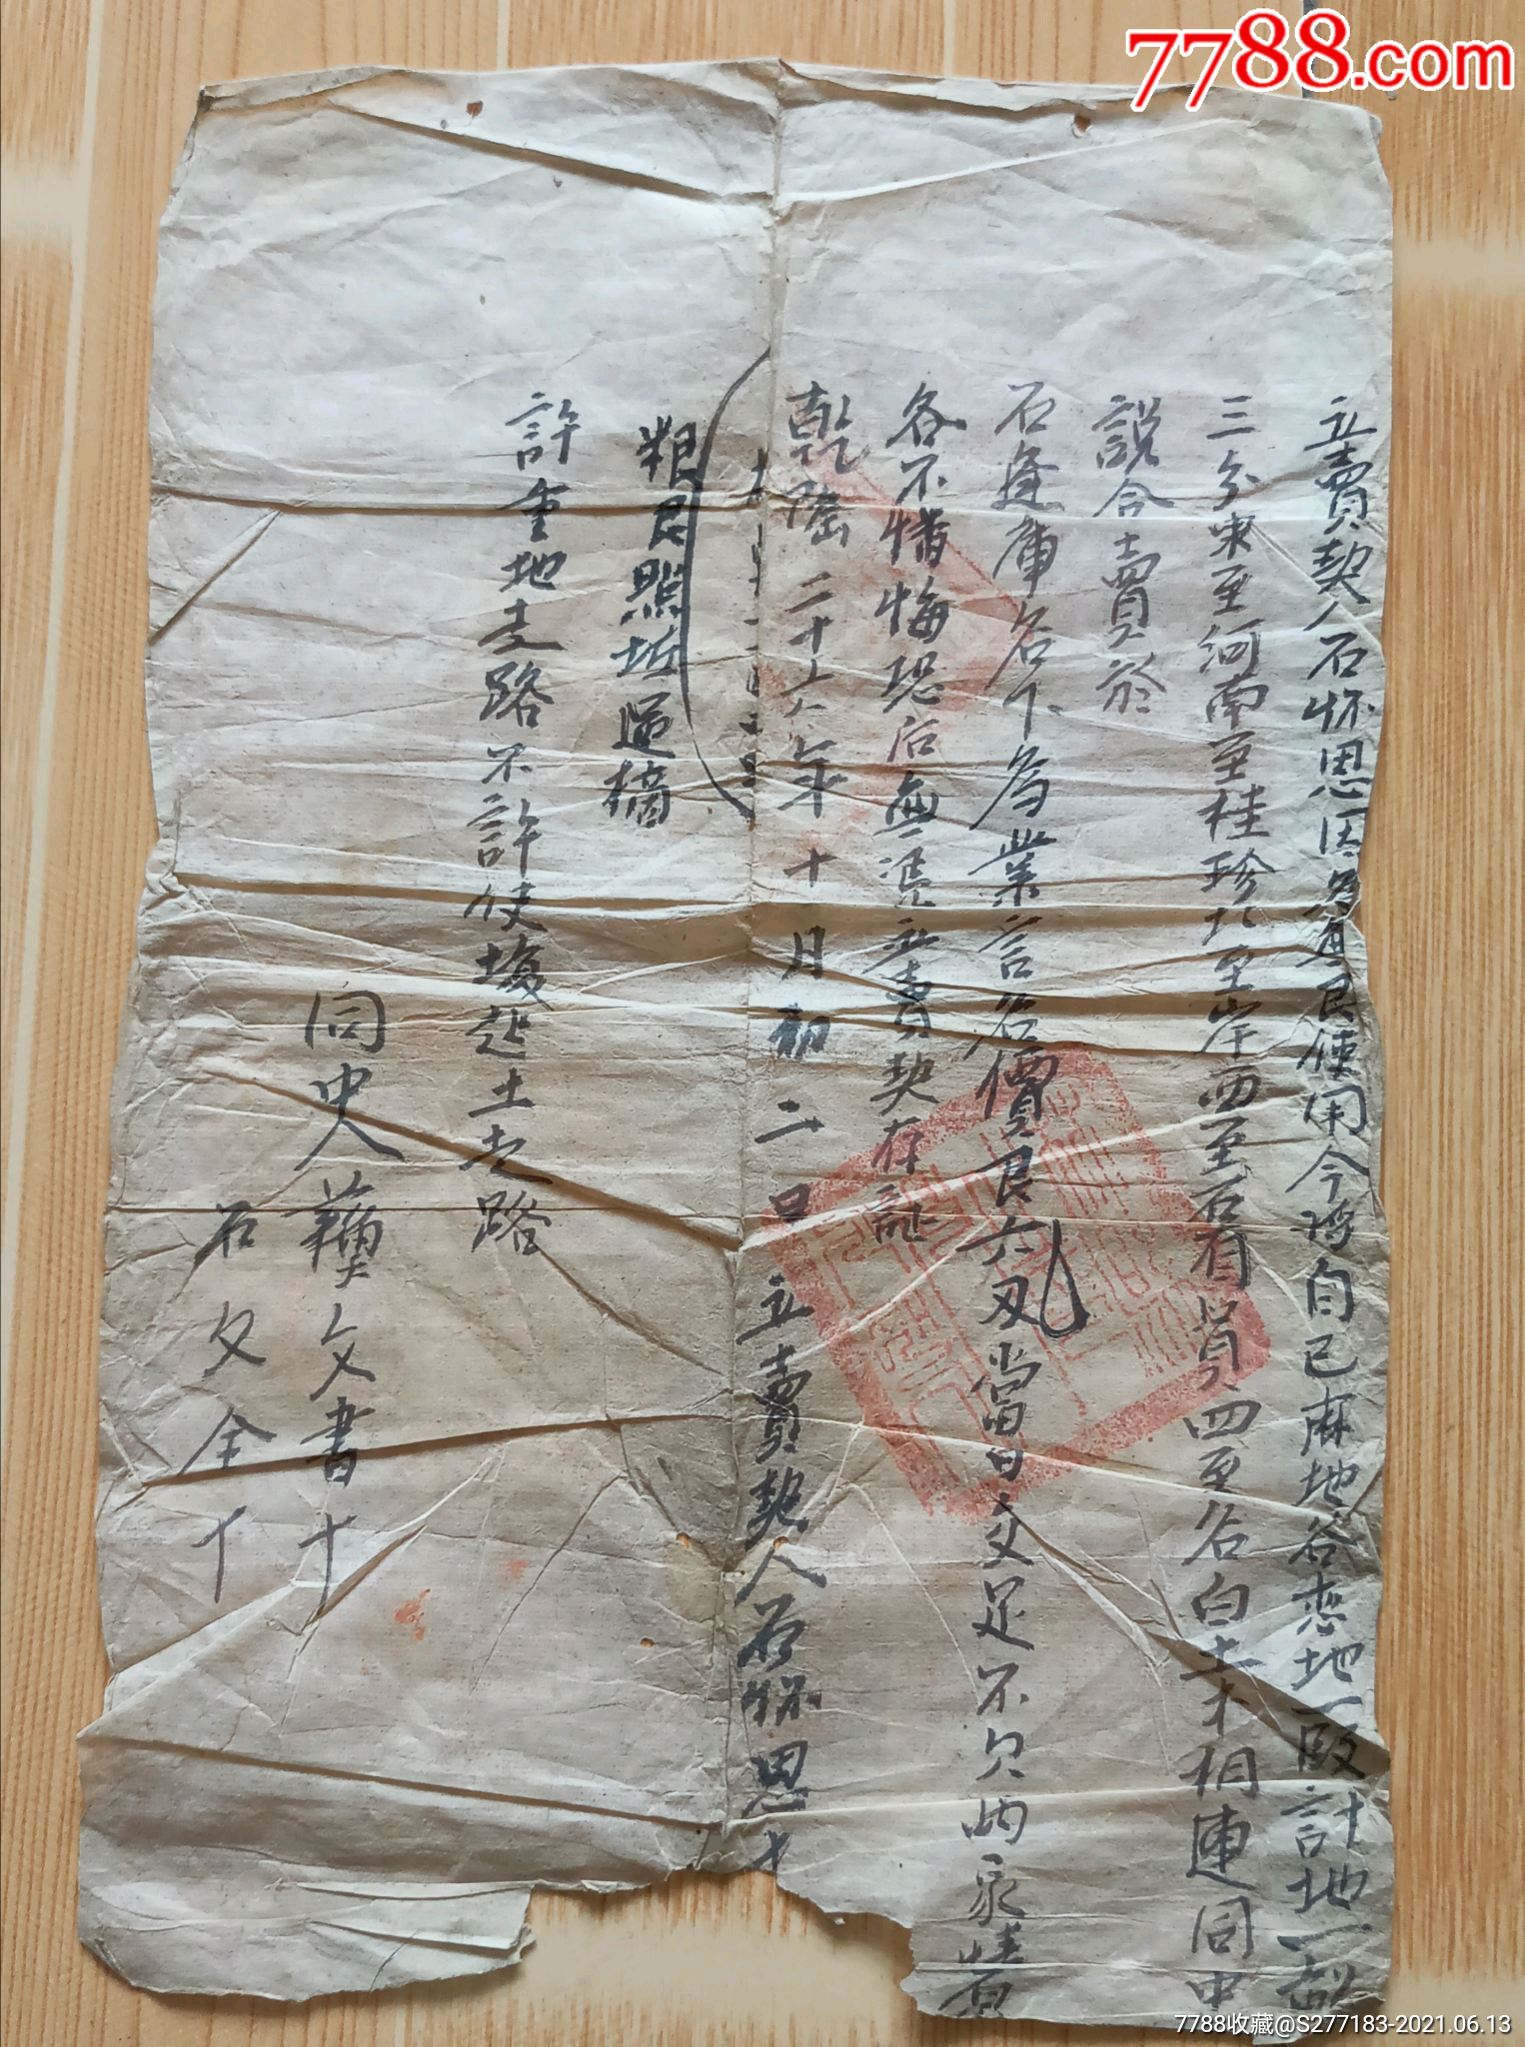 7788.com
立賣契人石怀思因為直艮使用今將自己麻地谷恋地一段計地一畝
三分東至河南至桂珍北至岸西至石有貴四至各白土木相連同中
說合賣於
石逢庫名下為業言名價艮六刄當日交足不欠両家情
各不憣悔恐后無憑立賣契存証
乾隆二十六年十月初二日立賣契人石怀思十
粮艮照 過
許重地走路不許使 走土走路
同中人 文書十
石文全十
7788收藏@S277183-2021.06.13